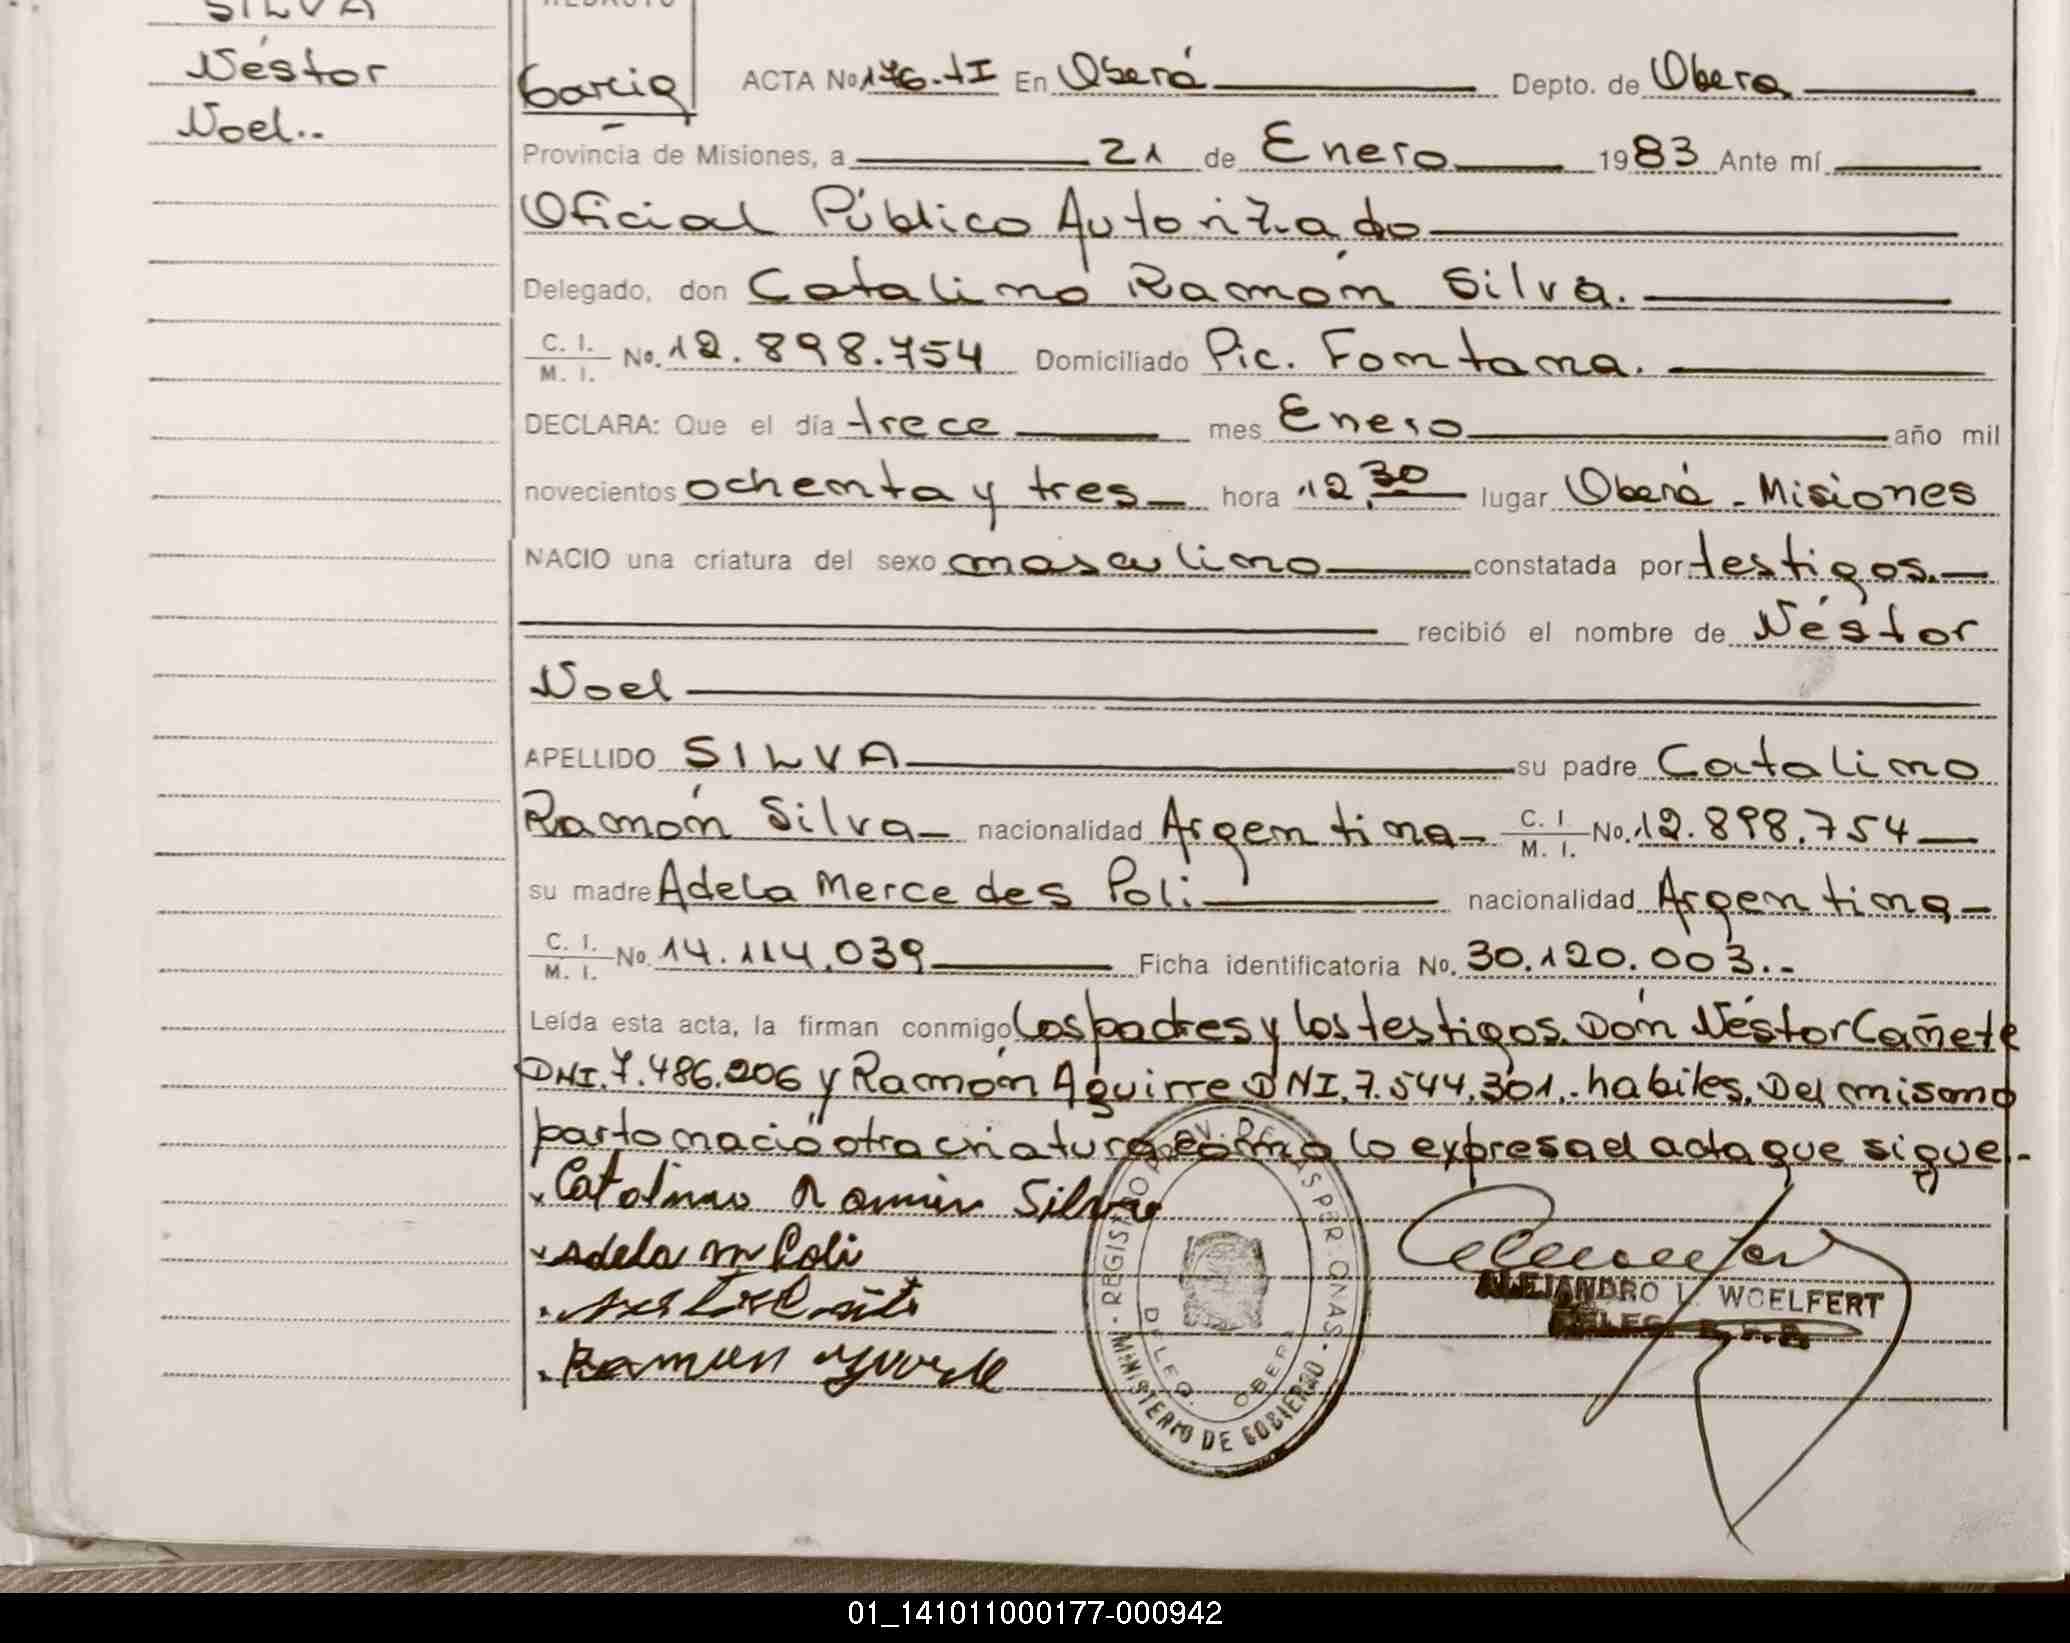 SILVA
Néstor
Noel..
REDACTO
García
ACTA No 176.-tI En Oberá Depto. de Obera
Provincia de Misiones, a 21 de Enero 1983 Ante mí
Oficial Público Autorizado
Delegado, don Catalino Ramón Silva.
C. I. M. I. No. 12.898.754 Domiciliado Pic. Fontana.
DECLARA: Que el día trece mes Enero año mil
novecientos ochenta y tres hora 12,30 lugar Oberá - Misiones
NACIO una criatura del sexo masculino constatada por testigos.
recibió el nombre de Néstor
Noel
APELLIDO SILVA su padre Catalino
Ramón Silva nacionalidad Argentina C. I. M. I. No. 12.898.754
su madre Adela Mercedes Poli nacionalidad Argentina
C. I. M. I. No. 14.114.039 Ficha identificatoria No. 30.120.003..-
Leída esta acta, la firman conmigo los padres y los testigos. Don Néstor Cañete
DNI. 7.486.206 y Ramón Aguirre DNI. 7.544.301.. habiles. Del mismo
parto nació otra criatura como lo expresa el acta que sigue.-
x Catalino Ramón Silva
x Adela M Poli
Ramon Aguirre
REGISTRO PROV. DE LAS PERSONAS
MINISTERIO DE GOBIERNO
DELEG. OBERA
ALEJANDRO L. WOELFERT
01_141011000177-000942